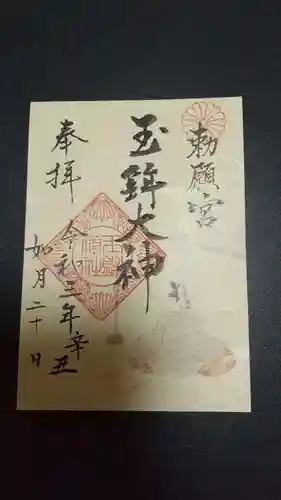 勅願宮
玉鉾大神
奉拝
令和三年辛丑
如月二十日